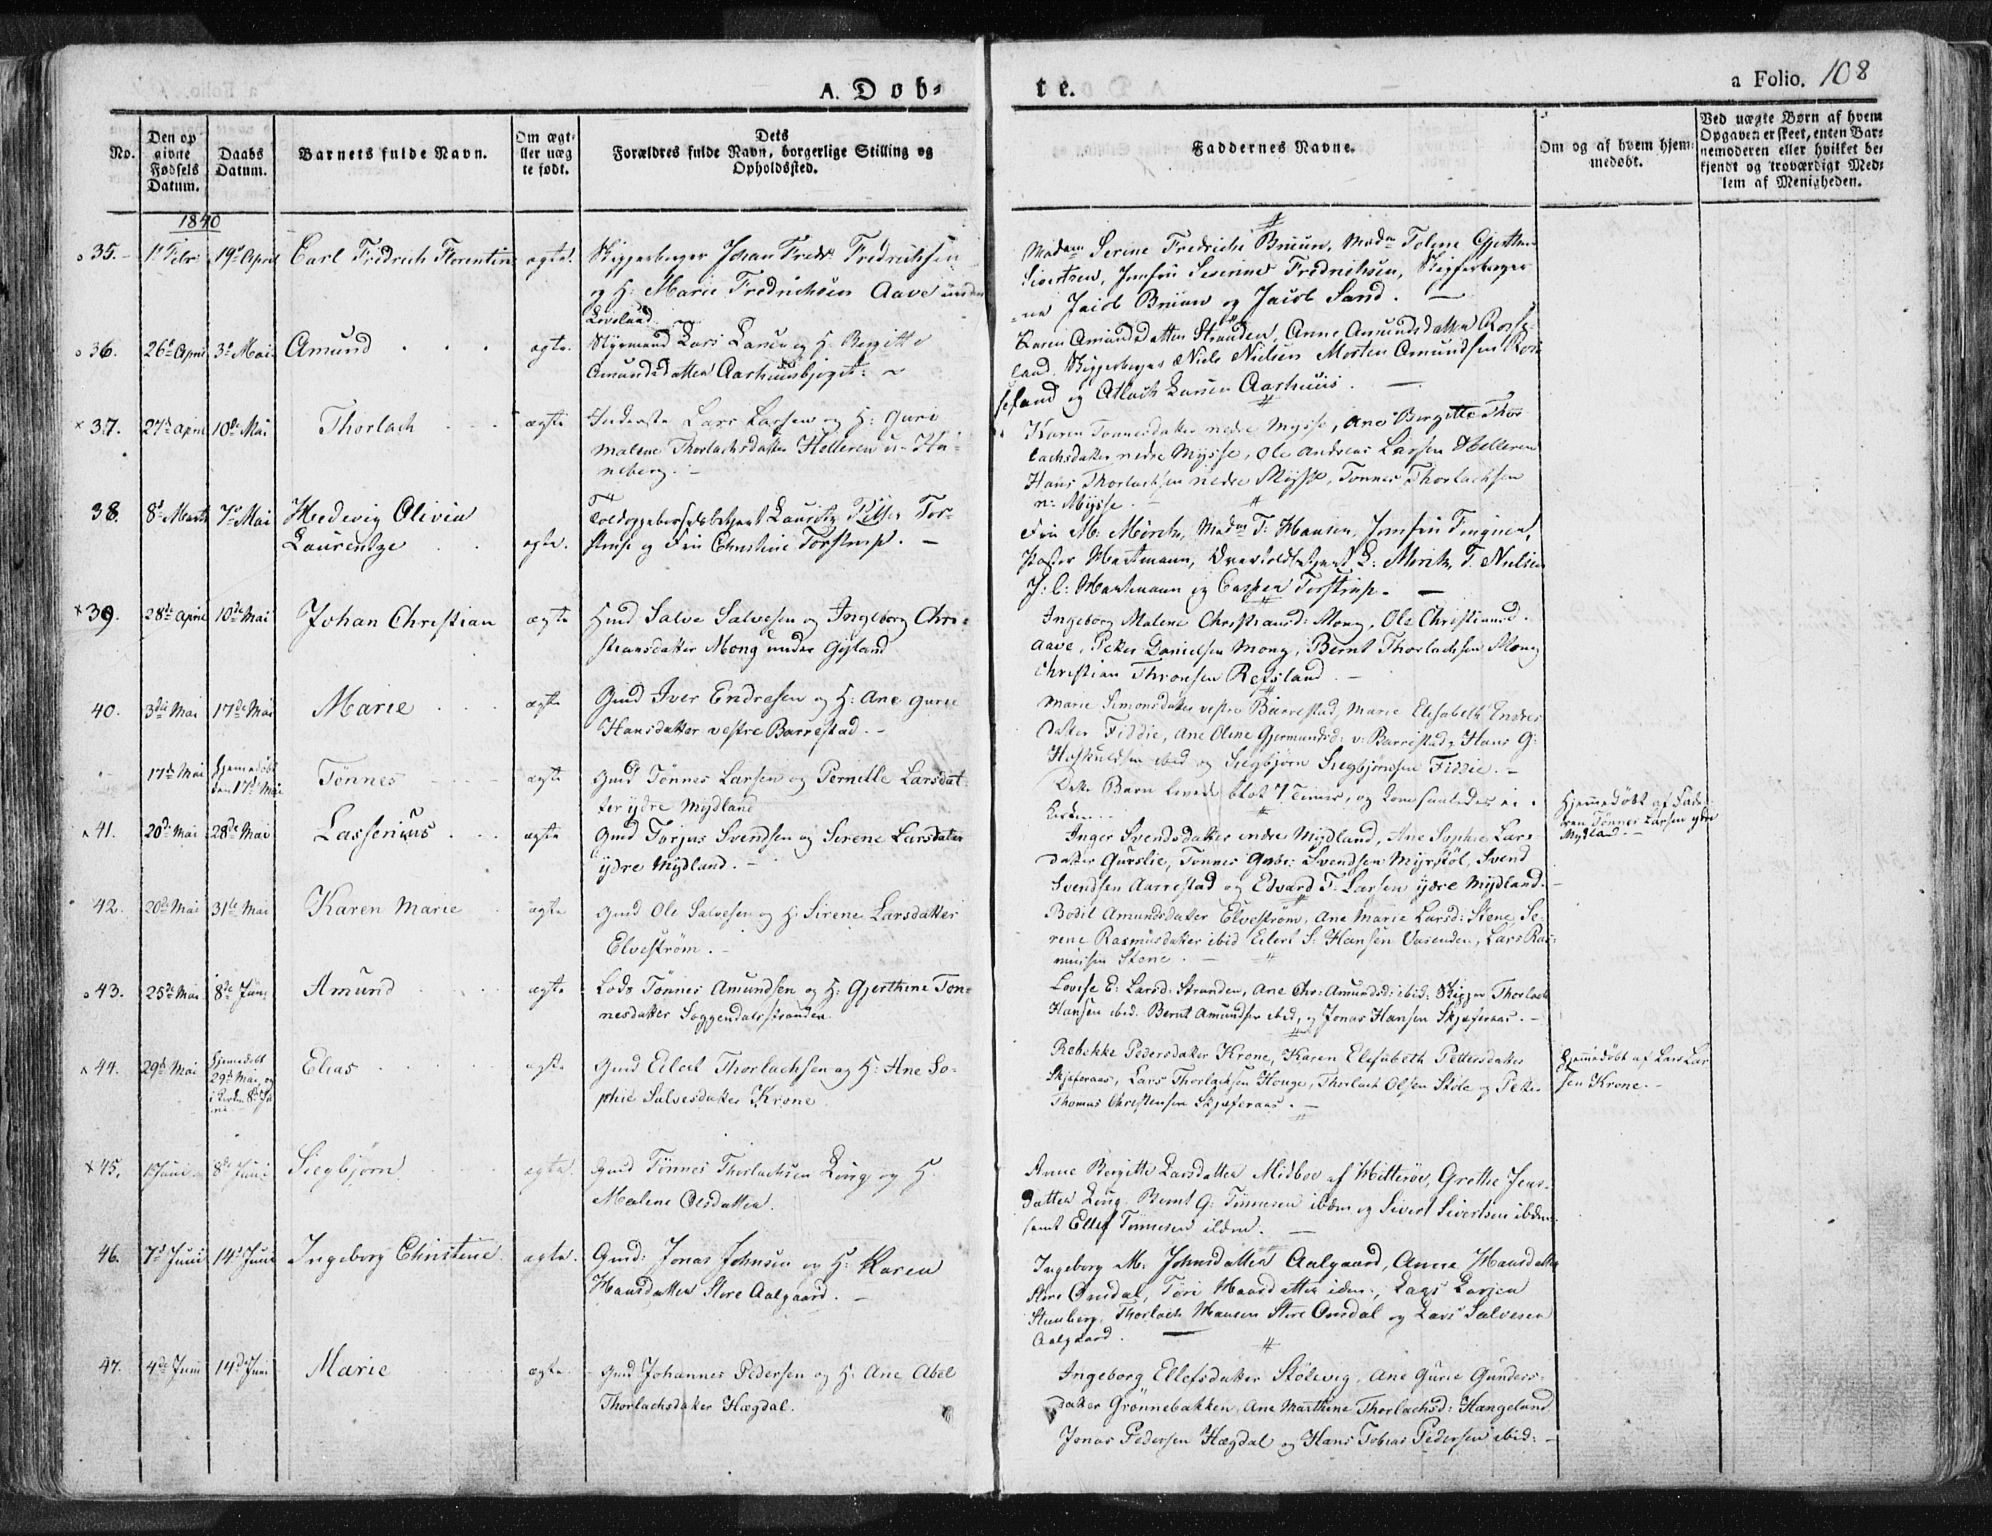 A. Døb-
te.
a Folio. 108
No.
Den op
givne
Fødsels
Datum.
Daabs
Datum.
Barnets fulde Navn.
Om ægt-
ller uæg
te født.
Dets
Forældres fulde Navn, borgerlige Stilling og
Opholdssted.
Faddernes Navne.
Om og af hvem hjem-
medøbt.
Ved uægte Børn af hvem
Opgaven er skeet, enten Bar-
nemoderen eller hvilket be-
kjendt og troværdigt Med-
lem af Menigheden.
1840
35. 1e Febr 19e April Carl Fridrich Florentin ægte. Skipperborger Johan Fredr Fredrichsen
og H: Marie Fredrichsen Aave under
Lovslaad.
Madm Serine Fredrichs Bruun, Madm Tolene Gjerthru
Sivertsen, Jomfru Severine Fredrichsen, Skipperborger
ne Jacob Bruun og Jacob Sand.
36. 26e April 3e Mai Amund ægte. Styrmand Lars Larsen og H: Bergitte
Amundsdatter Aarhuusbjeget:
Karen Amundsdatter Stranden, Anne Amundsdatter Rosse-
land. Skipperborger Niels Nielsen Morten Amundsen Ros-
seland og Atlach Larsen Aarhuus.
× 37. 27de April 10de Mai Thorlach ægte Inderste Lars Larsen og H: Guri
Malene Thorlachsdatter Helleren u. Ha-
neberg.
Karen Tonnesdatter nedre Mysse, Ane Bergitte Thor
lachsdatter nedre Mysse, Ole Andreas Larsen Helleren
Hans Thorlachsen nedre Mysse, Tonnes Thorlachsen
n: Mysse.
38. 8e Marts 7e Mai Hedevig Olivia
Laurentze ægte. Toldoppebørselsbetjent Lauritz Petter Tor-
strup og Fru Christine Torstrup.
Fru M. Mørch, Madm T: Hansen, Jomfru Tingnes,
Pastor Hartmann, Overtoldbetjent L: Mørch, T. Nielsen
J. C: Hartmann og Casper Torstrup.
× 39. 28de April 10de Mai Johan Christian ægte Hmd Salve Salvesen og Ingeborg Chri-
stiansdatter Mong under Gyland
Ingeborg Malene Christiansd: Mong, Ole Christiansd.
Aave, Peter Danielsen Mong, Bernt Thorlachsen Mong
Christian Thronsen Refsland.
40. 3die Mai 17de Mai Marie ægte Gmd Iver Endresen og H: Ane Gurie
Hansdatter vestre Barrestad.
Marie Simonsdatter vestre Barrestad, Marie Elisabeth Endres
datter Fiddie, Ane Oline Gjermundsd: v: Barrestad, Hans G:
Hoskuldsen ibid og Siegbjørn Siegbjørnsen Fiddie.
17de Mai Hjemmedøbt
den 17de Mai Tønnes ægte Gmd Tønnes Larsen og Pernille Larsdat-
ter ydre Mydland
Dette Barn levede blot 7 Timer, og kom saaledes ei i
Kirken.
Hjemmedøbt af Fade-
ren Tønnes Larsen ydre
Mydland.
41. 20de Mai 28de Mai Lasserius ægte Gmd Torjus Svendsen og Serene Larsdatter
ydre Mydland.
Inger Svendsdatter indre Mydland, Ane Sophie Lars-
datter Gurslie, Tønnes Gabr: Svendsen Myrstøl, Svend
Svendsen Aarrestad og Edvard T. Larsen ydre Mydland.
42. 20de Mai 31te Mai Karen Marie ægte Gmd Ole Salvesen og H: Sirene Larsdatter
Elvestrøm.
Bodil Amundsdatter Elvestrøm, Ane Marie Larsd: Stene Se-
rene Rasmusdatter ibid Eilert S: Hansen Vasenden, Lars Ras-
musen Stene.
43. 25de Mai 8de Juni Amund ægte Lods Tønnes Amundsen og H: Gjerthine Ton-
nesdatter Soggendalsstranden
Lovise E: Larsd: Stranden, Ane Chr: Amundsd: ibid: Skipper Thorlach
Hansen ibid. Bernt Amundsen ibid, og Jonas Hansen Skjæferaas.
44. 29de Mai Hjemmedøbt
29de Mai, og
i Kirken 8de Ju
ni Elias ægte Gmd Eilert Thorlachsen og H: Ane So-
phie Salvesdatter Krone.
Rebekke Pedersdatter Krone, Karen Elisabeth Pettersdatter
Skjæferaas, Lars Thorlachsen Houge, Thorlach Olsen Støle og Petter
Thomas Christensen Skjæferaas.
Hjemmedøbt af Lars Lar-
sen Krone.
× 45. 1 Juni 8de Juni Siegbjørn ægte. Gmd Tønnes Thorlachsen Ling og H.
Malene Olsdatter.
Anne Bergitte Larsdatter Midboe af Hitterøe, Grethe Jens-
datter Ling. Bernt G: Tønnesen ibidm og Sivert Sivertsen ibidm
samt Ellef Tønnesen ibidm.
46. 7e Juni 14e Juni Ingeborg Christine ægte. Gmd: Jonas Johnsen og H: Karen
Hansdatter Store Aalgaard.
Ingeborg M: Johnsdatter Aalgaard, Anna Hansdatter
Store Omdal, Tori Hansdatter idem, Lars Larsen
Steenberg, Thorlach Hansen Store Omdal og Lars Salvesen
Aalgaard.
47. 4de Juni 14de Juni Marie ægte. Gmd Johannes Pedersen og H: Ane Abel
Thorlachsdatter Hægdal.
Ingeborg Ellefsdatter Stølevig, Ane Gurie Gunders-
datter Grønnebakken, Ane Marthine Thorlachsd: Hangeland
Jonas Pedersen Hægdal og Hans Tobias Pedersen ibid: